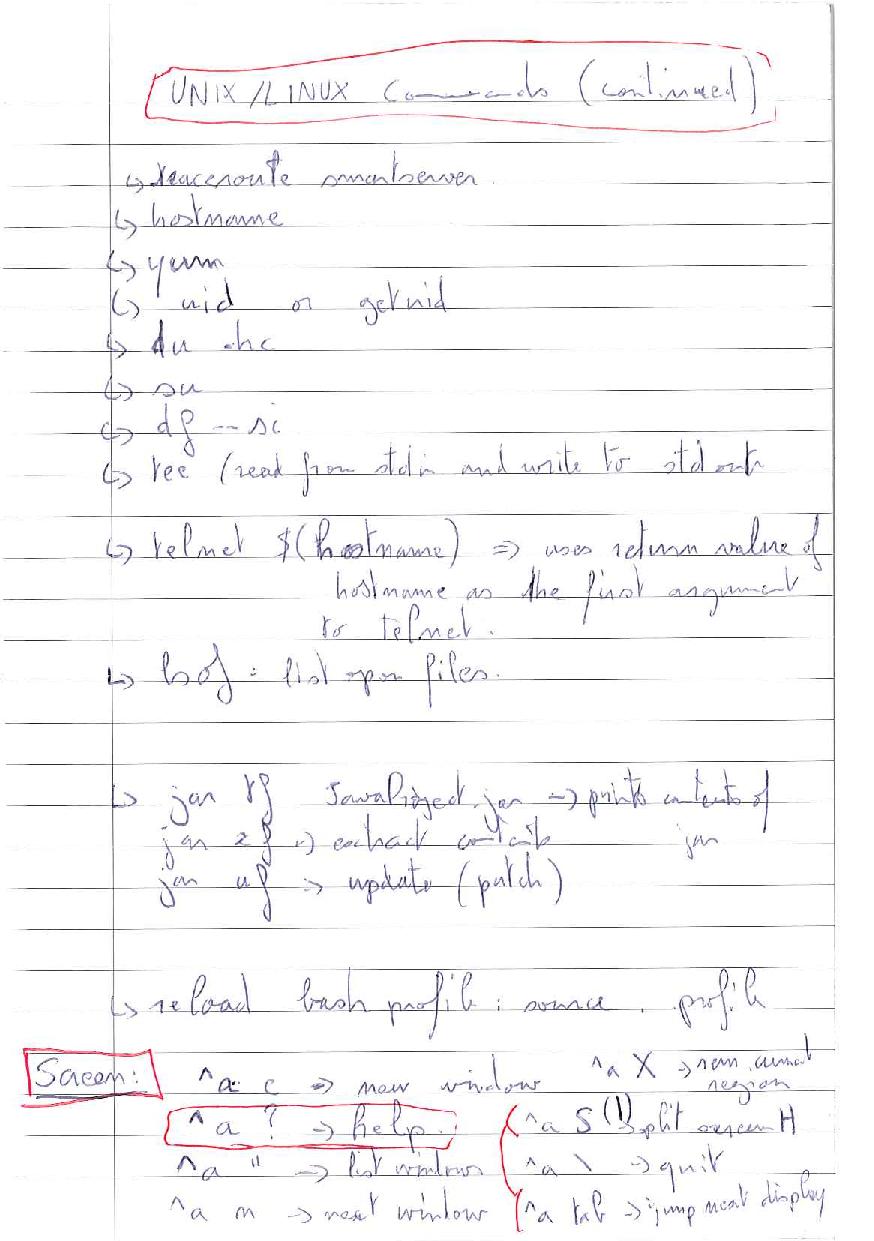 UNIX/LINUX Commands (continued)
↳ traceroute smartserver.
↳ hostname
↳ yum
↳ uid or getuid
↳ du -hc
↳ su
↳ df --si
↳ tee (read from stdin and write to stdout
↳ telnet $(hostname) => uses return value of
hostname as the first argument
to telnet.
↳ lsof = list open files.
↳ jar tf JavaProject.jar -> prints contents of
jar xf -> extract contents jar
jar uf -> update (patch)
↳ reload bash profile : source .profile
Screen:
^a c => new window ^a X -> rem. current
region
^a ? -> help. ^a S (|) split screen H
^a " -> list windows ^a \ -> quit
^a n -> next window ^a tab -> jump next display